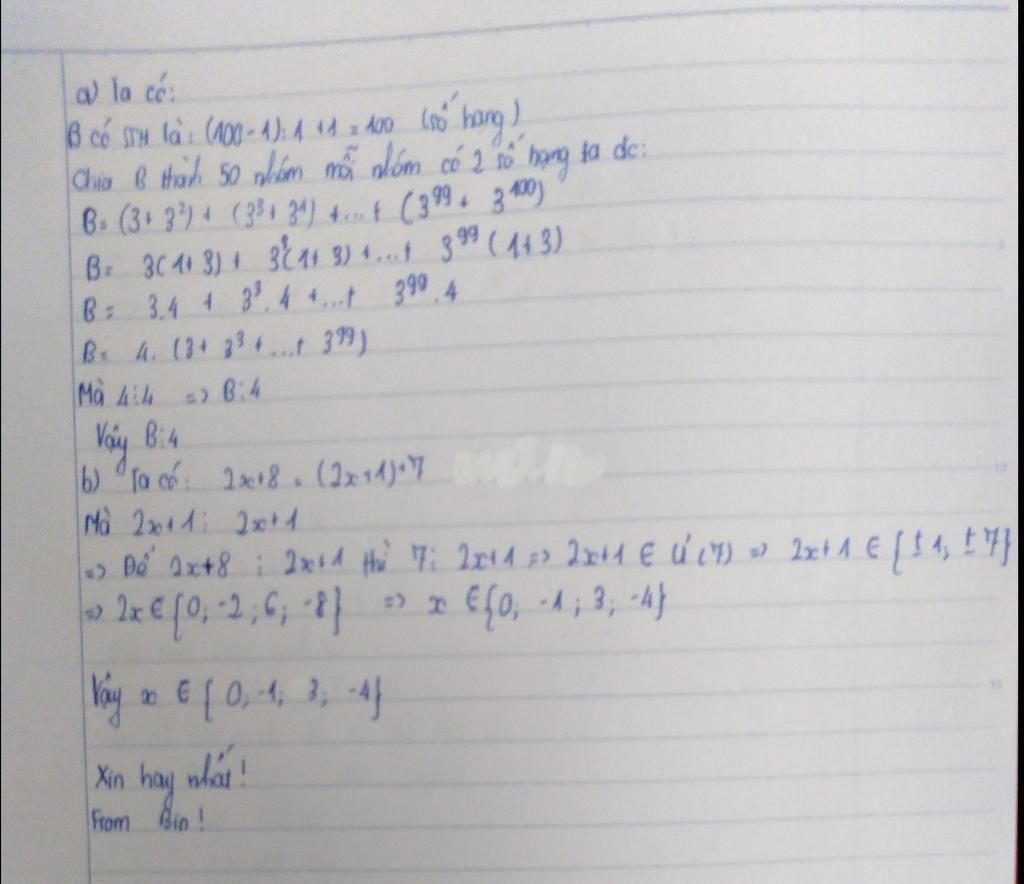 a) Ta có:
B có STH là: (100-1):1+1=100 (số hạng)
Chia B thành 50 nhóm mỗi nhóm có 2 số hạng ta đc:
B= (3+3²)+(3³+3⁴)+...+(3⁹⁹+3¹⁰⁰)
B= 3(1+3)+3³(1+3)+...+3⁹⁹(1+3)
B= 3.4+3³.4+...+3⁹⁹.4
B= 4.(3+3³+...+3⁹⁹)
Mà 4⋮4 => B⋮4
Vậy B⋮4
b) Ta có: 2x+8=(2x+1)+7
Mà 2x+1⋮2x+1
=> Để 2x+8⋮2x+1 thì 7⋮2x+1=>2x+1∈Ư(7)=>2x+1∈{±1;±7}
=> 2x∈{0;-2;6;-8} => x∈{0;-1;3;-4}
Vậy x∈{0;-1;3;-4}
Xin hay nhất!
From Bin!